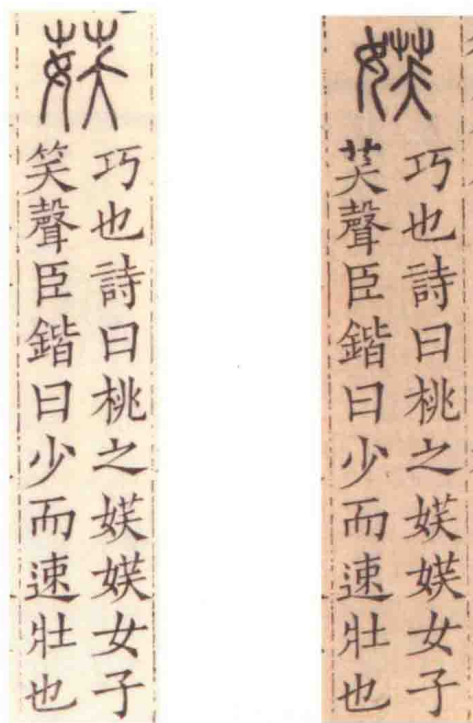 𡝩
巧也詩曰桃之𡝩𡝩女子
笑聲臣鍇曰少而速壯也
𡝩
巧也詩曰桃之𡝩𡝩女子
芺聲臣鍇曰少而速壯也